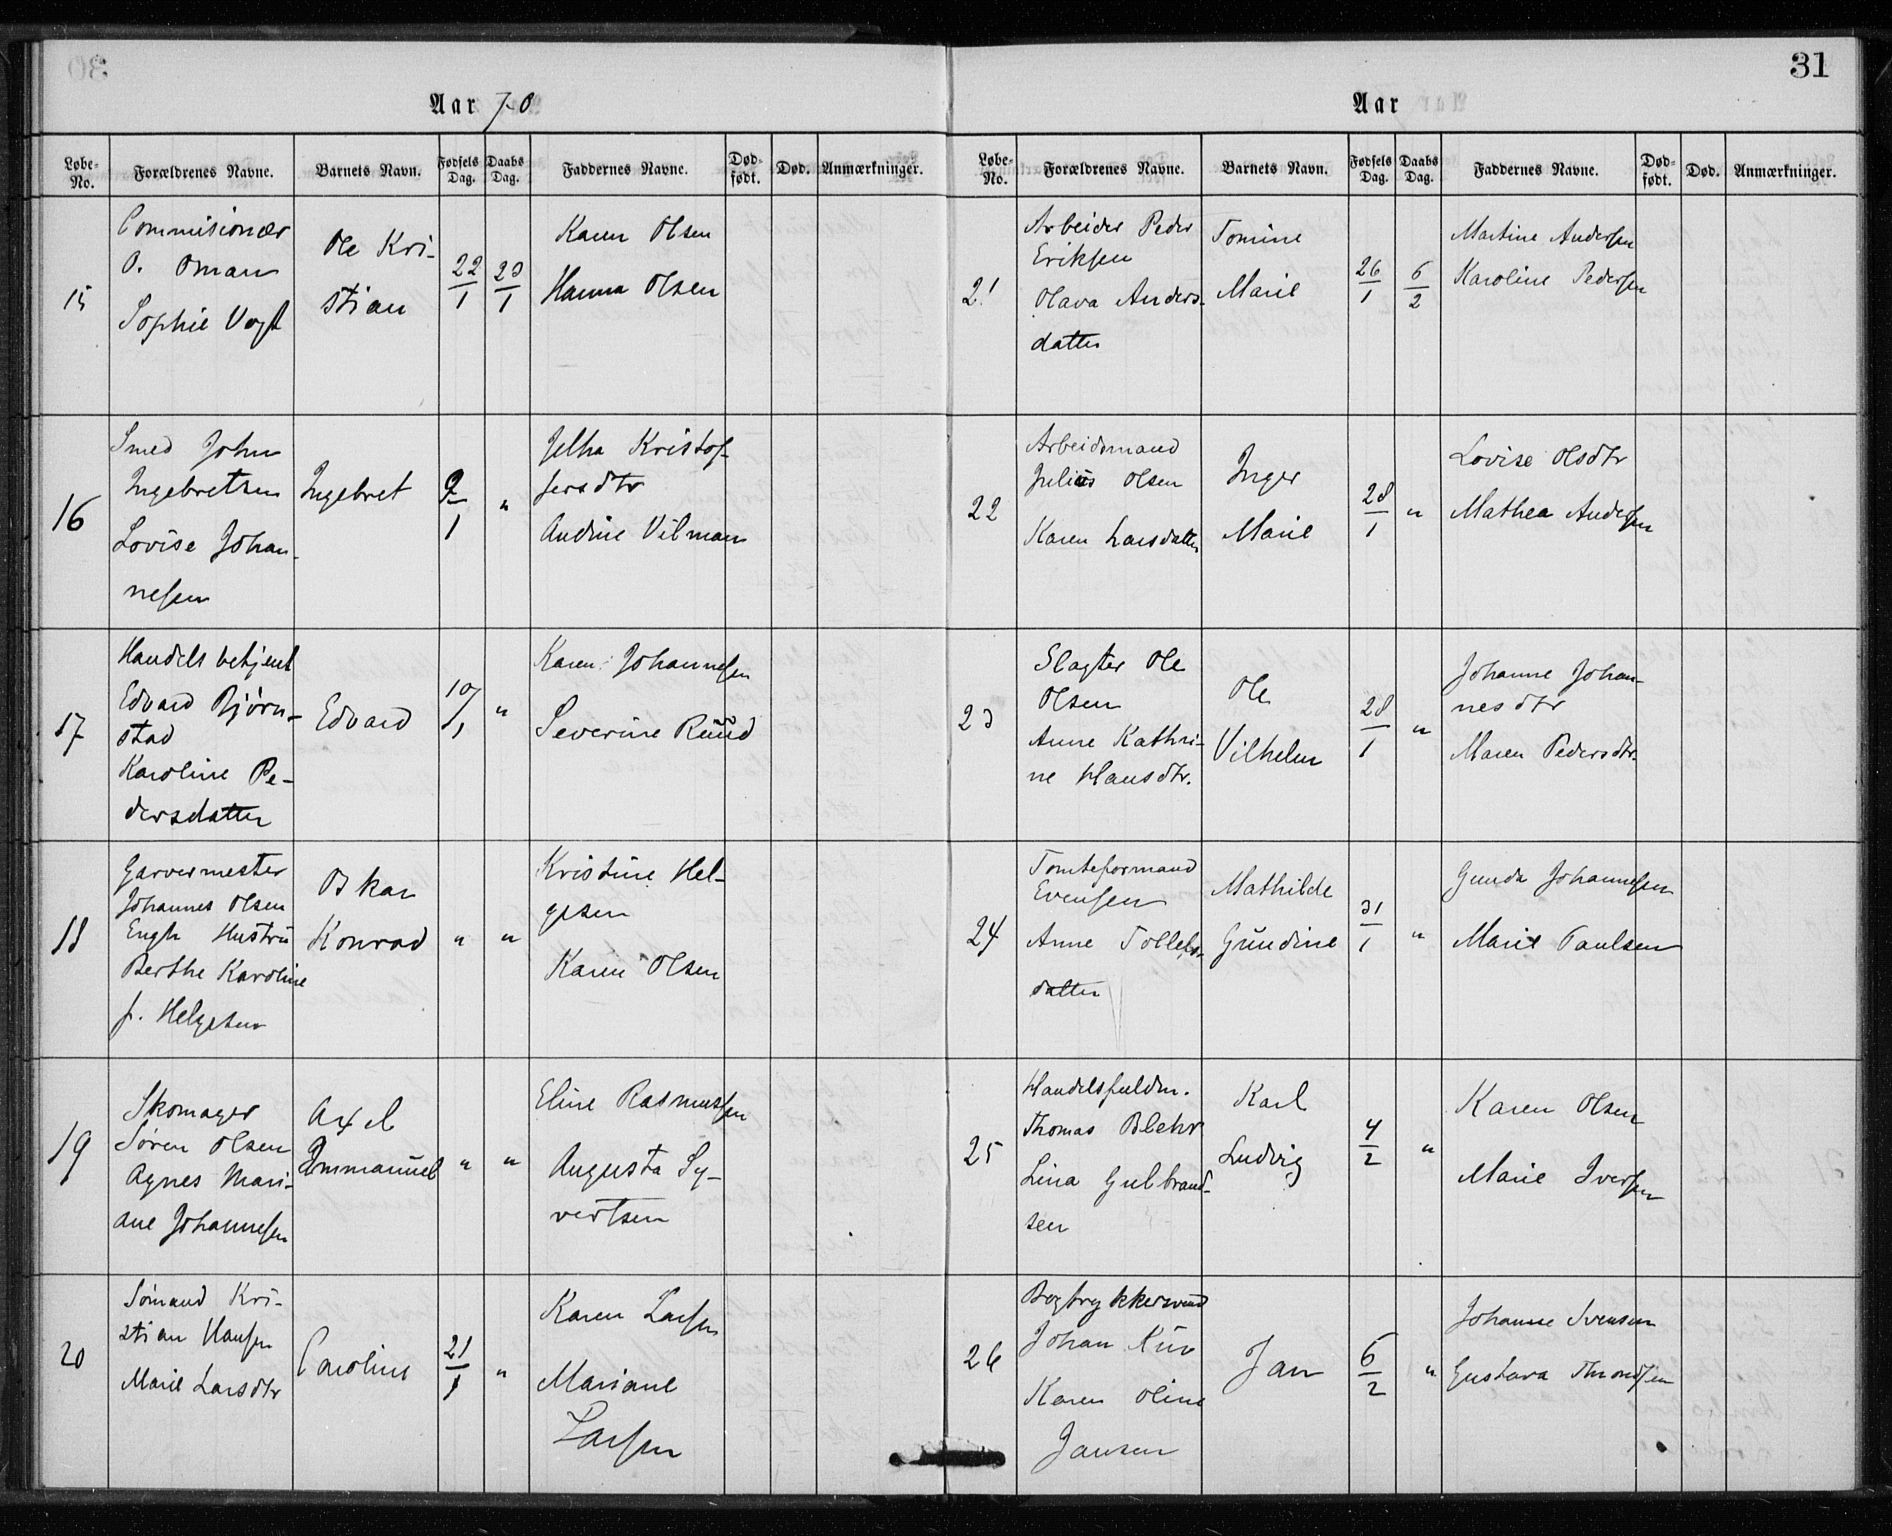 31
Aar 70
Løbe-No. Forældrenes Navne. Barnets Navn. Fødsels Dag. Daabs Dag. Faddernes Navne. Død-født. Død. Anmærkninger.
15
Commisionær
O. Oman
Sophie Vogt
Ole Kri-
stian
22/1
23/1
Karen Olsen
Hanna Olsen
16
Smed John
Ingebretsen
Lovise Johan-
nesen
Ingebret
9/1
"
Kristof-
fersdtr
Andrine Vilman
17
Handelsbetjent
Edvard Bjørn-
stad
Karoline Pe-
dersdatter
Edvard
10/1
"
Karen Johannesen
Severine Ruud
18
Garvermester
Johannes Olsen
Engh Hustru
Berthe Karoline
f. Helgesen
Oskar
Konrad
"
"
Kristine Hel-
gesen
Karen Olsen
19
Skomager
Søren Olsen
Agnes Mari-
ane Johannesen
Axel
Emmanuel
"
"
Eline Rasmussen
Augusta Sy-
vertsen
20
Sømand Kri-
stian Hansen
Marie Larsdtr
Caroline
21/1
"
Karen Larsen
Mariane
Larsen
Aar
Løbe-No. Forældrenes Navne. Barnets Navn. Fødsels Dag. Daabs Dag. Faddernes Navne. Død-født. Død. Anmærkninger.
21
Arbeider Peder
Eriksen
Olava Anders-
datter
Tomine
Marie
26/1
6/2
Martine Andersen
Karoline Pedersen
22
Arbeidsmand
Julius Olsen
Karen Larsdatter
Inger
Marie
28/1
"
Lovise Olsdtr
Mathea Andersen
23
Slagter Ole
Olsen
Anne Kathri-
ne Hansdtr.
Ole
Vilhelm
28/1
"
Johanne Johan-
nesdtr
Maren Pedersdtr.
24
Tomteformand
Evensen
Anne Tollefs-
datter
Mathilde
Gundine
31/1
"
Gunda Johannesen
Marie Paulsen
25
Handelsfuldm.
Thomas Blehr
Lina Gulbrand-
sen
Karl
Ludvig
4/2
"
Karen Olsen
Marie Iversen
26
Bogtrykkersvend
Johan
Karen Oline
Jansen
Jan
6/2
"
Johanne Svensen
Gustava